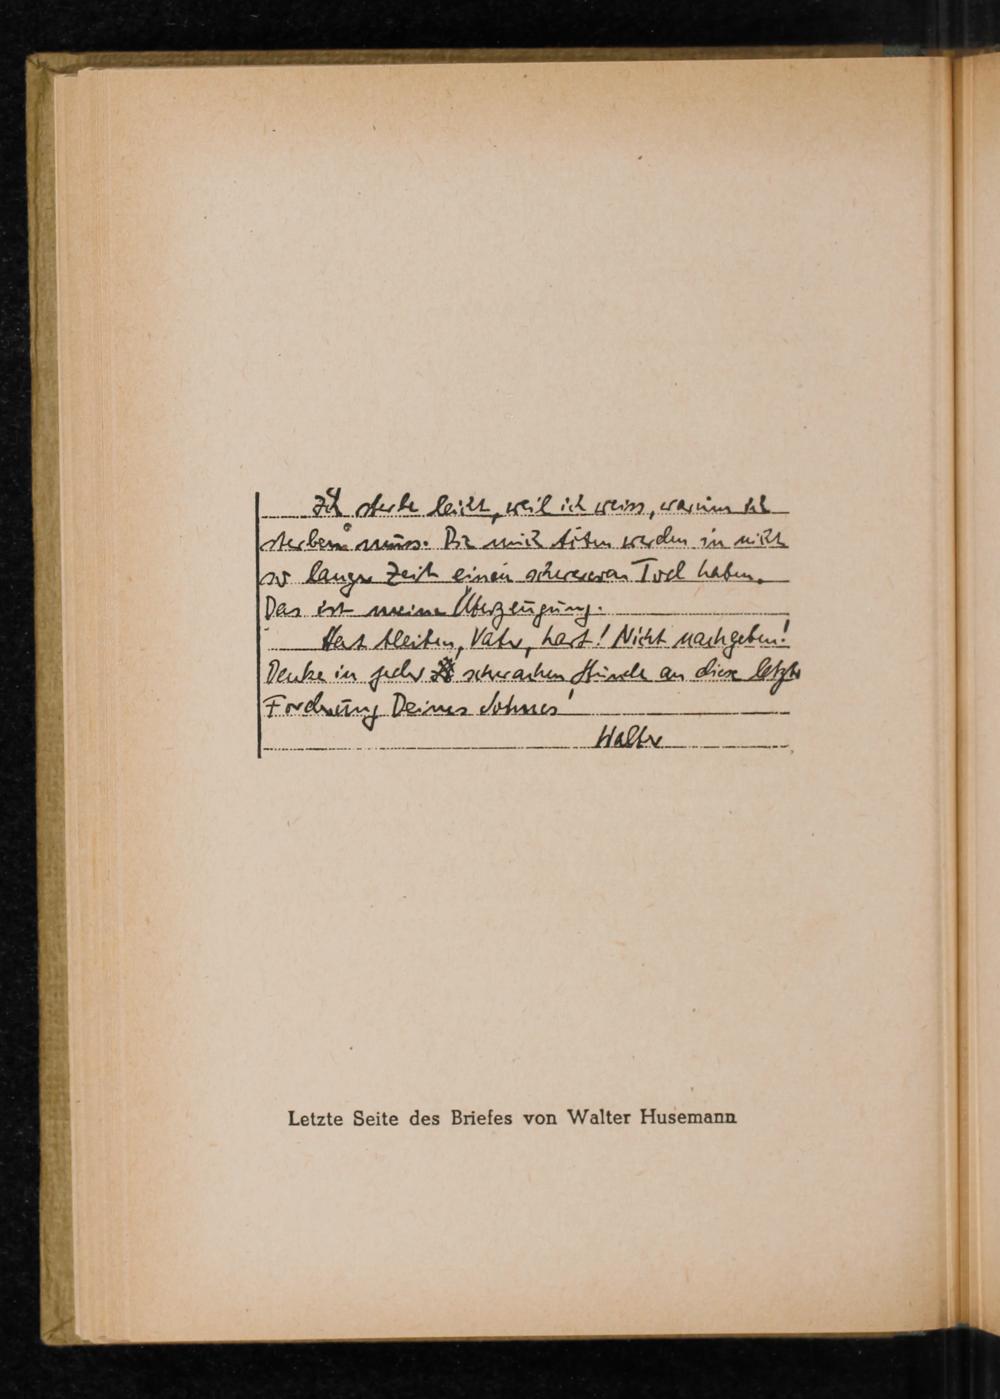 Ich sterbe leicht, weil ich weiss, warum ich
sterben muss. Die mich töten werden in nicht
so langer Zeit einen schweren Tod haben.
Das ist meine Überzeugung.
Hart bleiben, Vater, hart! Nicht nachgeben!
Denke in jeder schwachen Stunde an diese letzte
Forderung Deines Sohnes!
Walter
Letzte Seite des Briefes von Walter Husemann